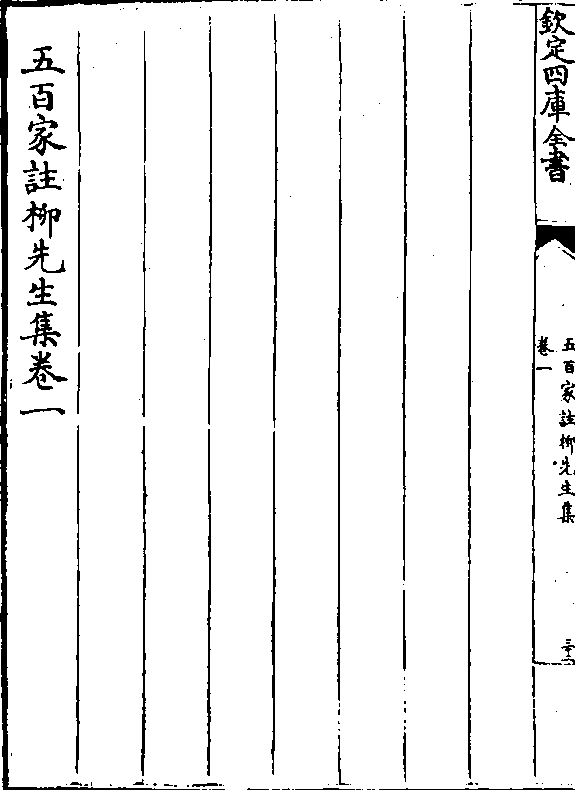 欽定四庫全書
五百家註柳先生集
卷一
五百家註柳先生集卷一